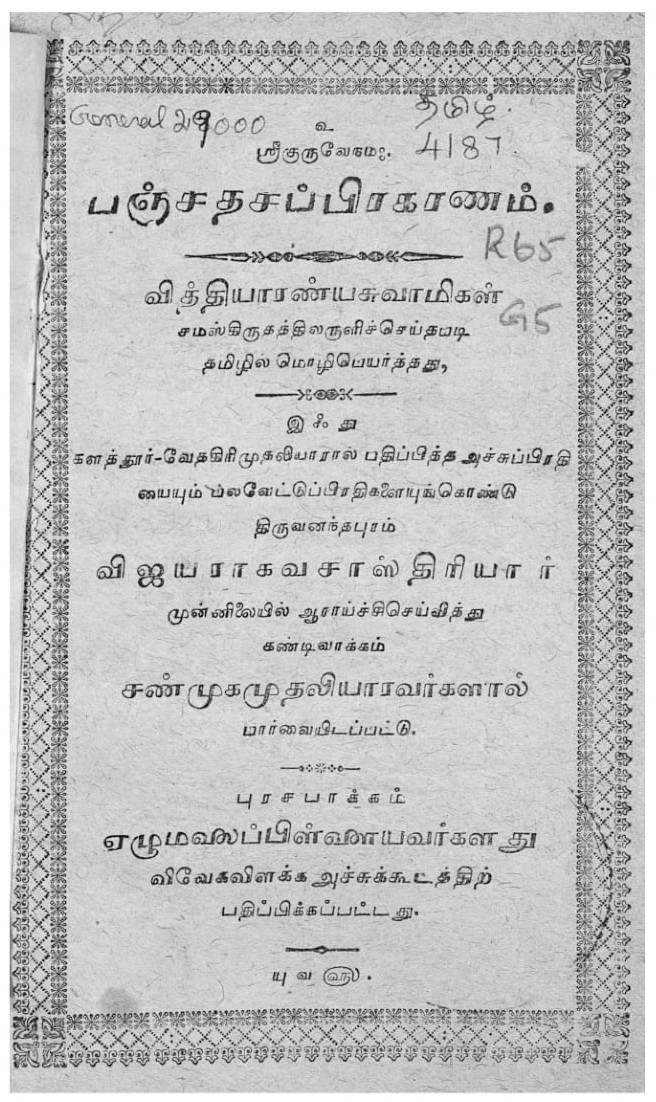 General 29000
தமிழ்.
4187.
உ
ஸ்ரீகுருவேநமஃ.
பஞ்சதசப்பிரகரணம்.
R65
வித்தியாரண்யசுவாமிகள்
G5
சமஸ்கிருதத்திலருளிச்செய்தபடி
தமிழில் மொழிபெயர்த்தது,
இஃது
களத்தூர்-வேதகிரிமுதலியாரால் பதிப்பித்த அச்சுப்பிரதி
யையும் பலவேட்டுப்பிரதிகளையுங்கொண்டு
திருவனந்தபுரம்
விஜயராகவசாஸ்திரியார்
முன்னிலையில் ஆராய்ச்சிசெய்வித்து
கண்டிவாக்கம்
சண்முகமுதலியாரவர்களால்
பார்வையிடப்பட்டு.
புரசபாக்கம்
ஏழுமலைப்பிள்ளையவர்களது
விவேகவிளக்க அச்சுக்கூடத்திற்
பதிப்பிக்கப்பட்டது.
யுவ ௵.